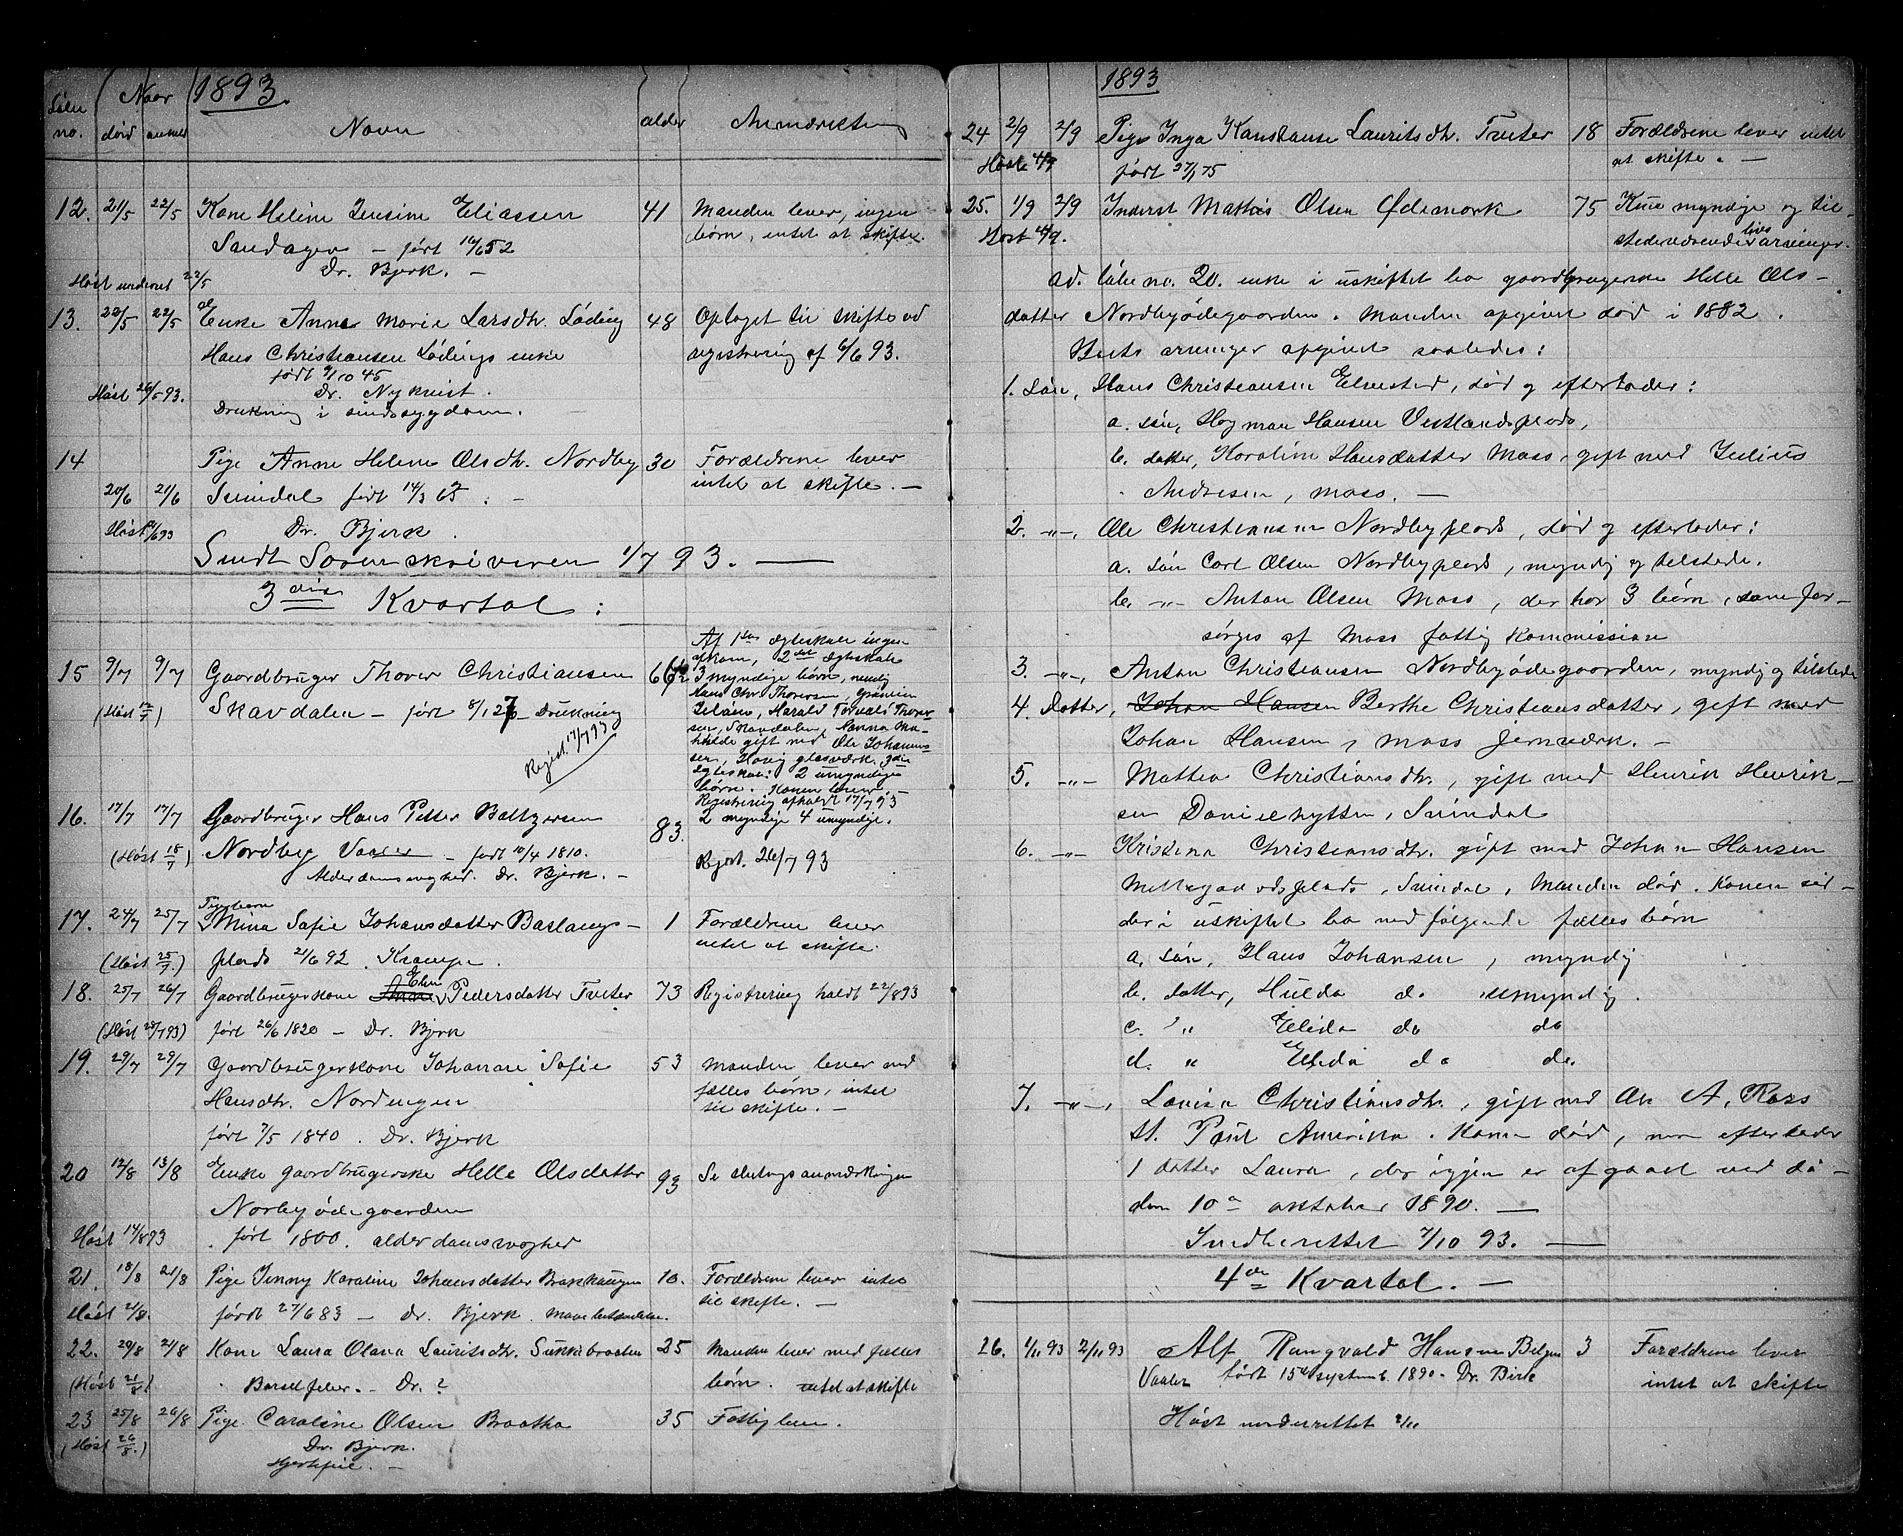 1893.
Løbe Naar
no. død anmel. Navn alder Anmærkning
12. 21/5 22/5 Kone Heline Jensine Eliassen 41 Manden lever, ingen
Sandager – født 16/6 52 børn, intet at skifte.
Dr. Bjerk. –
Høst underret 22/5
13. 22/5 22/5 Enke Anne Marie Larsdtr. Løding 48 Optaget til skifte ved
Hans Christiansen Lødings enke registrering af 6/6 93.
født 9/10 45
Høst 26/5 93. Dr. Nykvist.
Drukning i sindssygdom.
14 Pige Anne Helene Olsdtr. Nordby 30 Forældrene lever
20/6 21/6 Svindal født 14/3 63. – intet at skifte. –
Høst 93 Dr. Bjerk.
Sendt Sorenskriveren 1/7 93. —
3die Kvartal:
Af 1ste ægteskab ingen
afkom, 2det ægteskab
15 9/7 9/7 Gaardbruger Thorer Christiansen 66 3 myndige børn, nemlig
Hans Chr. Thoresen,
(Høst 12/7) Skavdalen – født 8/1 27 – Drukning Harald Torvald Thore-
sen, Skavdalen, Hanna Ma-
Regist. 17/7 93 thilde gift med Ole Johannes-
sen, glasværk. 3die
ægteskab: 2 umyndige
børn. Konen lever. –
Registrering afholdt 17/7 93
16. 17/7 17/7 Gaardbruger Hans Petter Baltzersen 83. 2 myndige 4 umyndige.
(Høst 18/7) Nordby Vaaler – født 10/4 1810. Regst. 26/7 93
Alderdomssvaghed. Dr. Bjerk. –
17. 24/7 25/7 Pigebarn Mina Sofie Johansdatter Baslangs- 1 Forældrene lever
(Høst 25/7.) plads 21/6 92. Krampe. intet at skifte.
18. 25/7 26/7 Gaardbrugerkone Anne Elen Pedersdatter Tveter 73 Registrering holdt 22/8 93
(Høst 28/7 93) født 26/6 1820 – Dr. Bjerk
19. 29/7 29/7 Gaardbrugerkone Johanne Sofie 53 Manden lever med
Hansdtr. Nordengen fælles børn, intet
til skifte. –
født 7/5 1840. Dr. Bjerk
20 12/8 13/8 Enke gaardbrugerske Helle Olsdatter 93 Se slutningsanmærkningen
Norbyødegaarden
Høst 14/8 93 født 1800. alderdomssvaghed
21. 18/8 21/8 Pige Jenny Karoline Johansdatter Brækhaugen 10. Forældrene lever intet
Høst 21/8. født 27/6 83 – Dr. Bjerk. Mavebetændelse. til skifte. –
22. 20/8 21/8 Kone Laura Olava Lauritsdtr. Sukkebraaten 25 Manden lever med fælles
(Høst 21/8) Barselfeber. – Dr. ? børn. intet at skifte
23 25/8 26/8 Pige Caroline Olsen Braatha 35 Fattiglem.
(Høst 26/8.) Dr. Bjerk.
Hjertefeil. –
1893
24 2/9 2/9 Pige Inga Konstanse Lauritsdtr. Tveter 18 Forældrene lever intet
Høst 4/9 født 27/1 75 at skifte. –
25. 1/9 2/9 Inderst Mathis Olsen Ødemork 75 Kun myndige og til-
Høst 4/9. stedeværende livsarvinger.
ad. løbeno. 20. enke i uskiftet bo gaardbrugerske Helle Ols-
datter Nordbyødegaarden. Manden opgivet død i 1882.
Boets arvinger opgivet saaledes:
1. Søn, Hans Christiansen Elvestad, død og efterlader:
a. søn, Hagman Hansen Vestlandsplads,
b. datter, Karoline Hansdatter Moss, gift med Julius
Andresen, Moss. –
2. -"-, Ole Christiansen Nordbyplads, død og efterlader:
a. søn Carl Olsen Nordbyplads, myndig og tilstede.
b. -"- Anton Olsen Moss, der har 3 børn, som for-
sørges af Moss fattigkommission
3. -"-, Anton Christiansen Nordbyødegaarden, myndig og tilstede
4. Datter, Johan Hansen Berthe Christiansdatter, gift med
Johan Hansen, Moss Jernværk. –
5. -"- Mathea Christiansdtr., gift med Henrik Henrik-
sen Danielhytten, Svindal
6. -"- Kristina Christiansdtr. gift med Johan Hansen
plads, Svindal, Manden død. Konen sid-
der i uskiftet bo med følgende fælles børn
a. søn, Hans Johansen, myndig
b. datter, Hulda do umyndig.
c. " Elida do do
d. " do do.
7. -"-, Lovisa Christiansdtr., gift med Ole A. Ross
St. Paul Amerika. Konen død, men efterlader
1 datter Laura, der igjen er afgaaet ved dø-
den 10de oktober 1890. —
Indberettet 7/10 93. —
4de Kvartal. –
26. 1/11 93 2/11 93 Alf Rangvald Hansen Belgen 3 Forældrene lever
Vaaler født 15de septemb. 1890. Dr. Birk intet at skifte
Høst underrettet 2/11